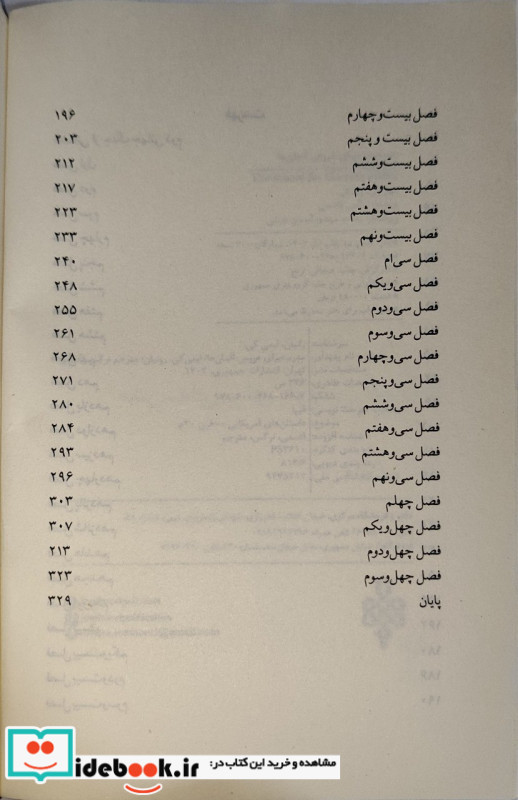 فصل بیست‌وچهارم ۱۹۶
فصل بیست و پنجم ۲۰۳
فصل بیست‌وششم ۲۱۲
فصل بیست‌وهفتم ۲۱۷
فصل بیست‌وهشتم ۲۲۳
فصل بیست‌ونهم ۲۳۳
فصل سی‌ام ۲۴۰
فصل سی‌ویکم ۲۴۸
فصل سی‌ودوم ۲۵۵
فصل سی‌وسوم ۲۶۱
فصل سی‌وچهارم ۲۶۸
فصل سی‌وپنجم ۲۷۱
فصل سی‌وششم ۲۸۰
فصل سی‌وهفتم ۲۸۴
فصل سی‌وهشتم ۲۹۳
فصل سی‌ونهم ۲۹۶
فصل چهلم ۳۰۳
فصل چهل‌ویکم ۳۰۷
فصل چهل‌ودوم ۲۱۳
فصل چهل‌وسوم ۳۲۳
پایان ۳۲۹
مشاهده و خرید این کتاب در:
idebook.ir